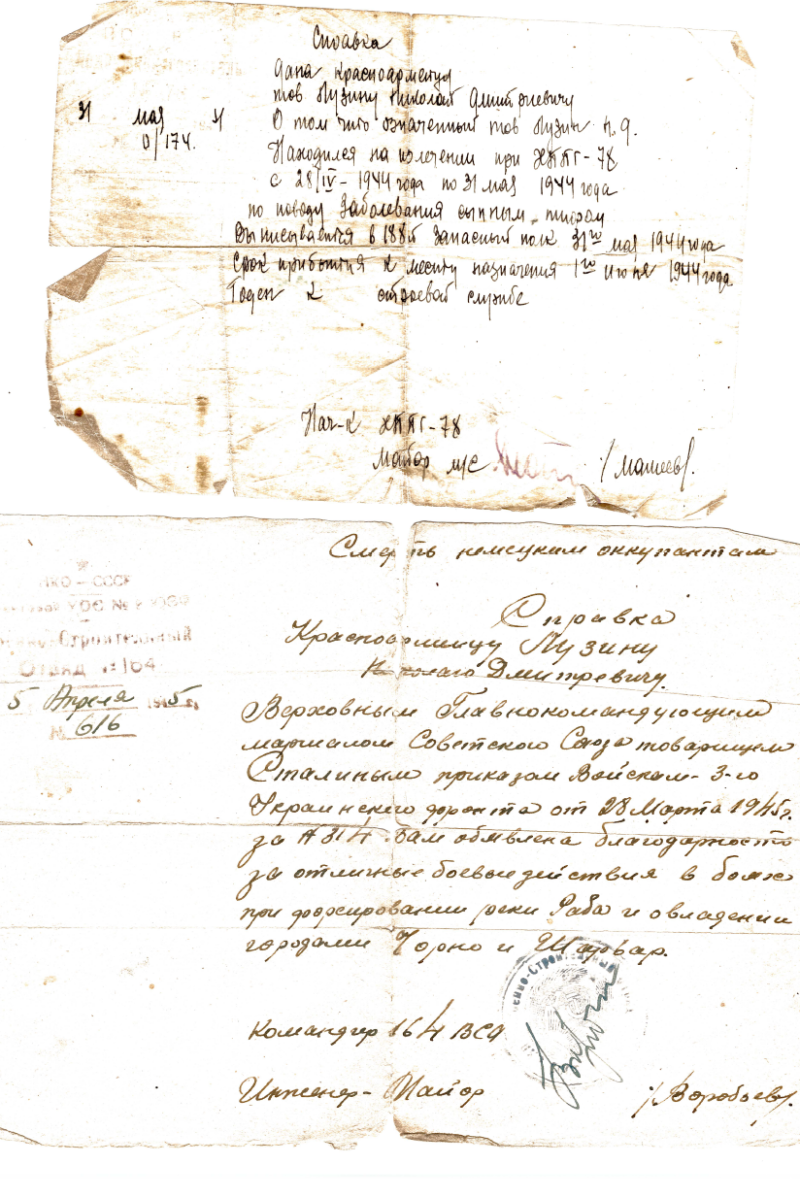 Справка
Дана красноармейцу
тов Лузину Николаю Дмитриевичу
31 мая
О том что означенный тов Лузин Н.Д.
0/174.
Находился на излечении при ХППГ-78
с 28/IV - 1944 года по 31 мая 1944 года
по поводу заболевания сыпным тифом
Выписывается в 188й запасный полк 31го мая 1944 года
Срок прибытия к месту назначения 1го июня 1944 года.
Годен к строевой службе
Нач-к ХППГ-78
Майор м/с
Смерть немецким оккупантам
НКО-СССР
УОС №
Справка
Строительный
Красноармейцу Лузину
Отряд № 164
Дмитревичу.
5 Апреля 1945 г.
№ 616
Верховным Главнокомандующим
маршалом Советского Союза товарищем
Сталиным приказом войскам - 3-го
Украинского фронта от 28 Марта 1945 г.
за № 314 Вам обявлена благодарность
за отличные боевые действия в боях
при форсировании реки Раба и овладении
городами Чорно и Шарвар.
Командир 164 ВСО
Инженер-Майор /Воробьев/.